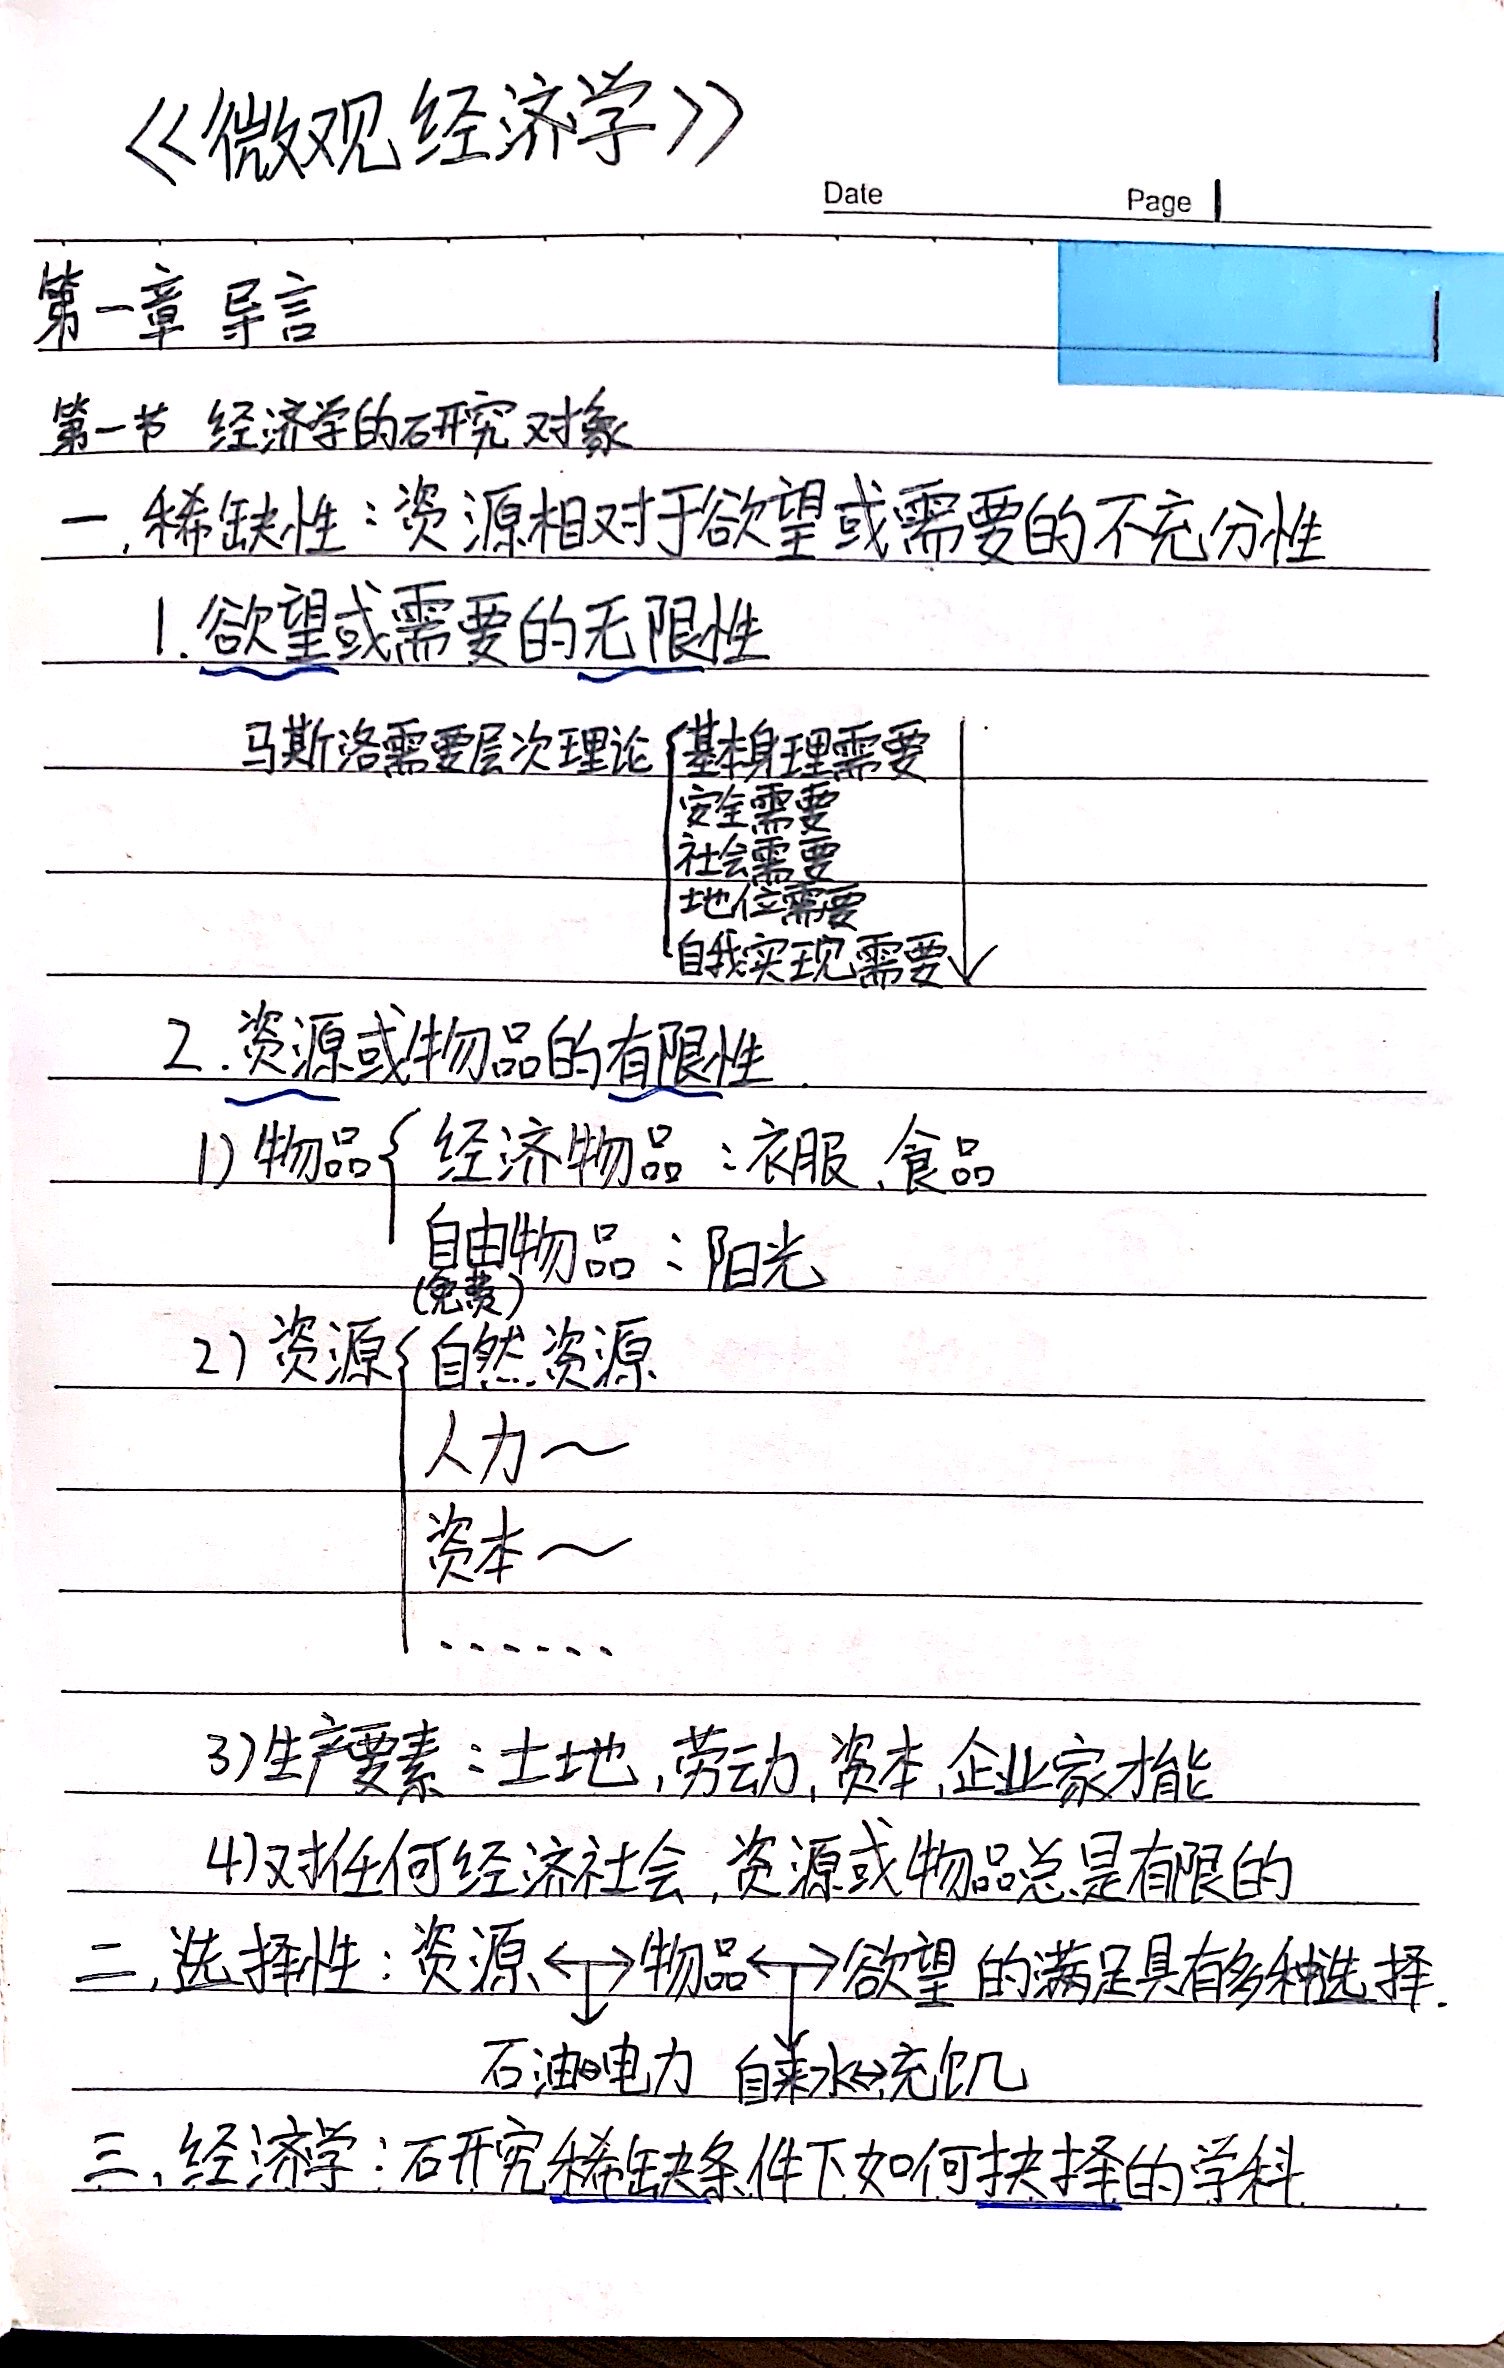 《微观经济学》
Date Page 1
1
第一章 导言
第一节 经济学的研究对象
一、稀缺性：资源相对于欲望或需要的不充分性
1. 欲望或需要的无限性
马斯洛需要层次理论 { 基本身理需要
安全需要
社会需要
地位需要
自我实现需要
2. 资源或物品的有限性.
1) 物品 { 经济物品：衣服、食品
自由物品：阳光
(免费)
2) 资源 { 自然资源
人力～
资本～
......
3) 生产要素：土地,劳动,资本,企业家才能
4) 对任何经济社会,资源或物品总是有限的
二、选择性：资源↔物品↔欲望的满足具有多种选择.
石油↔电力 自来水↔充饥
三、经济学：研究稀缺条件下如何抉择的学科.